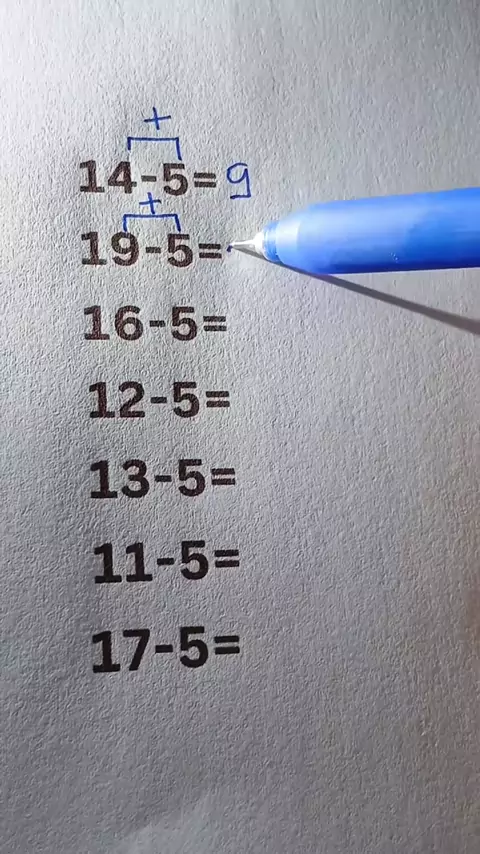 +
14-5=9
+
19-5=
16-5=
12-5=
13-5=
11-5=
17-5=